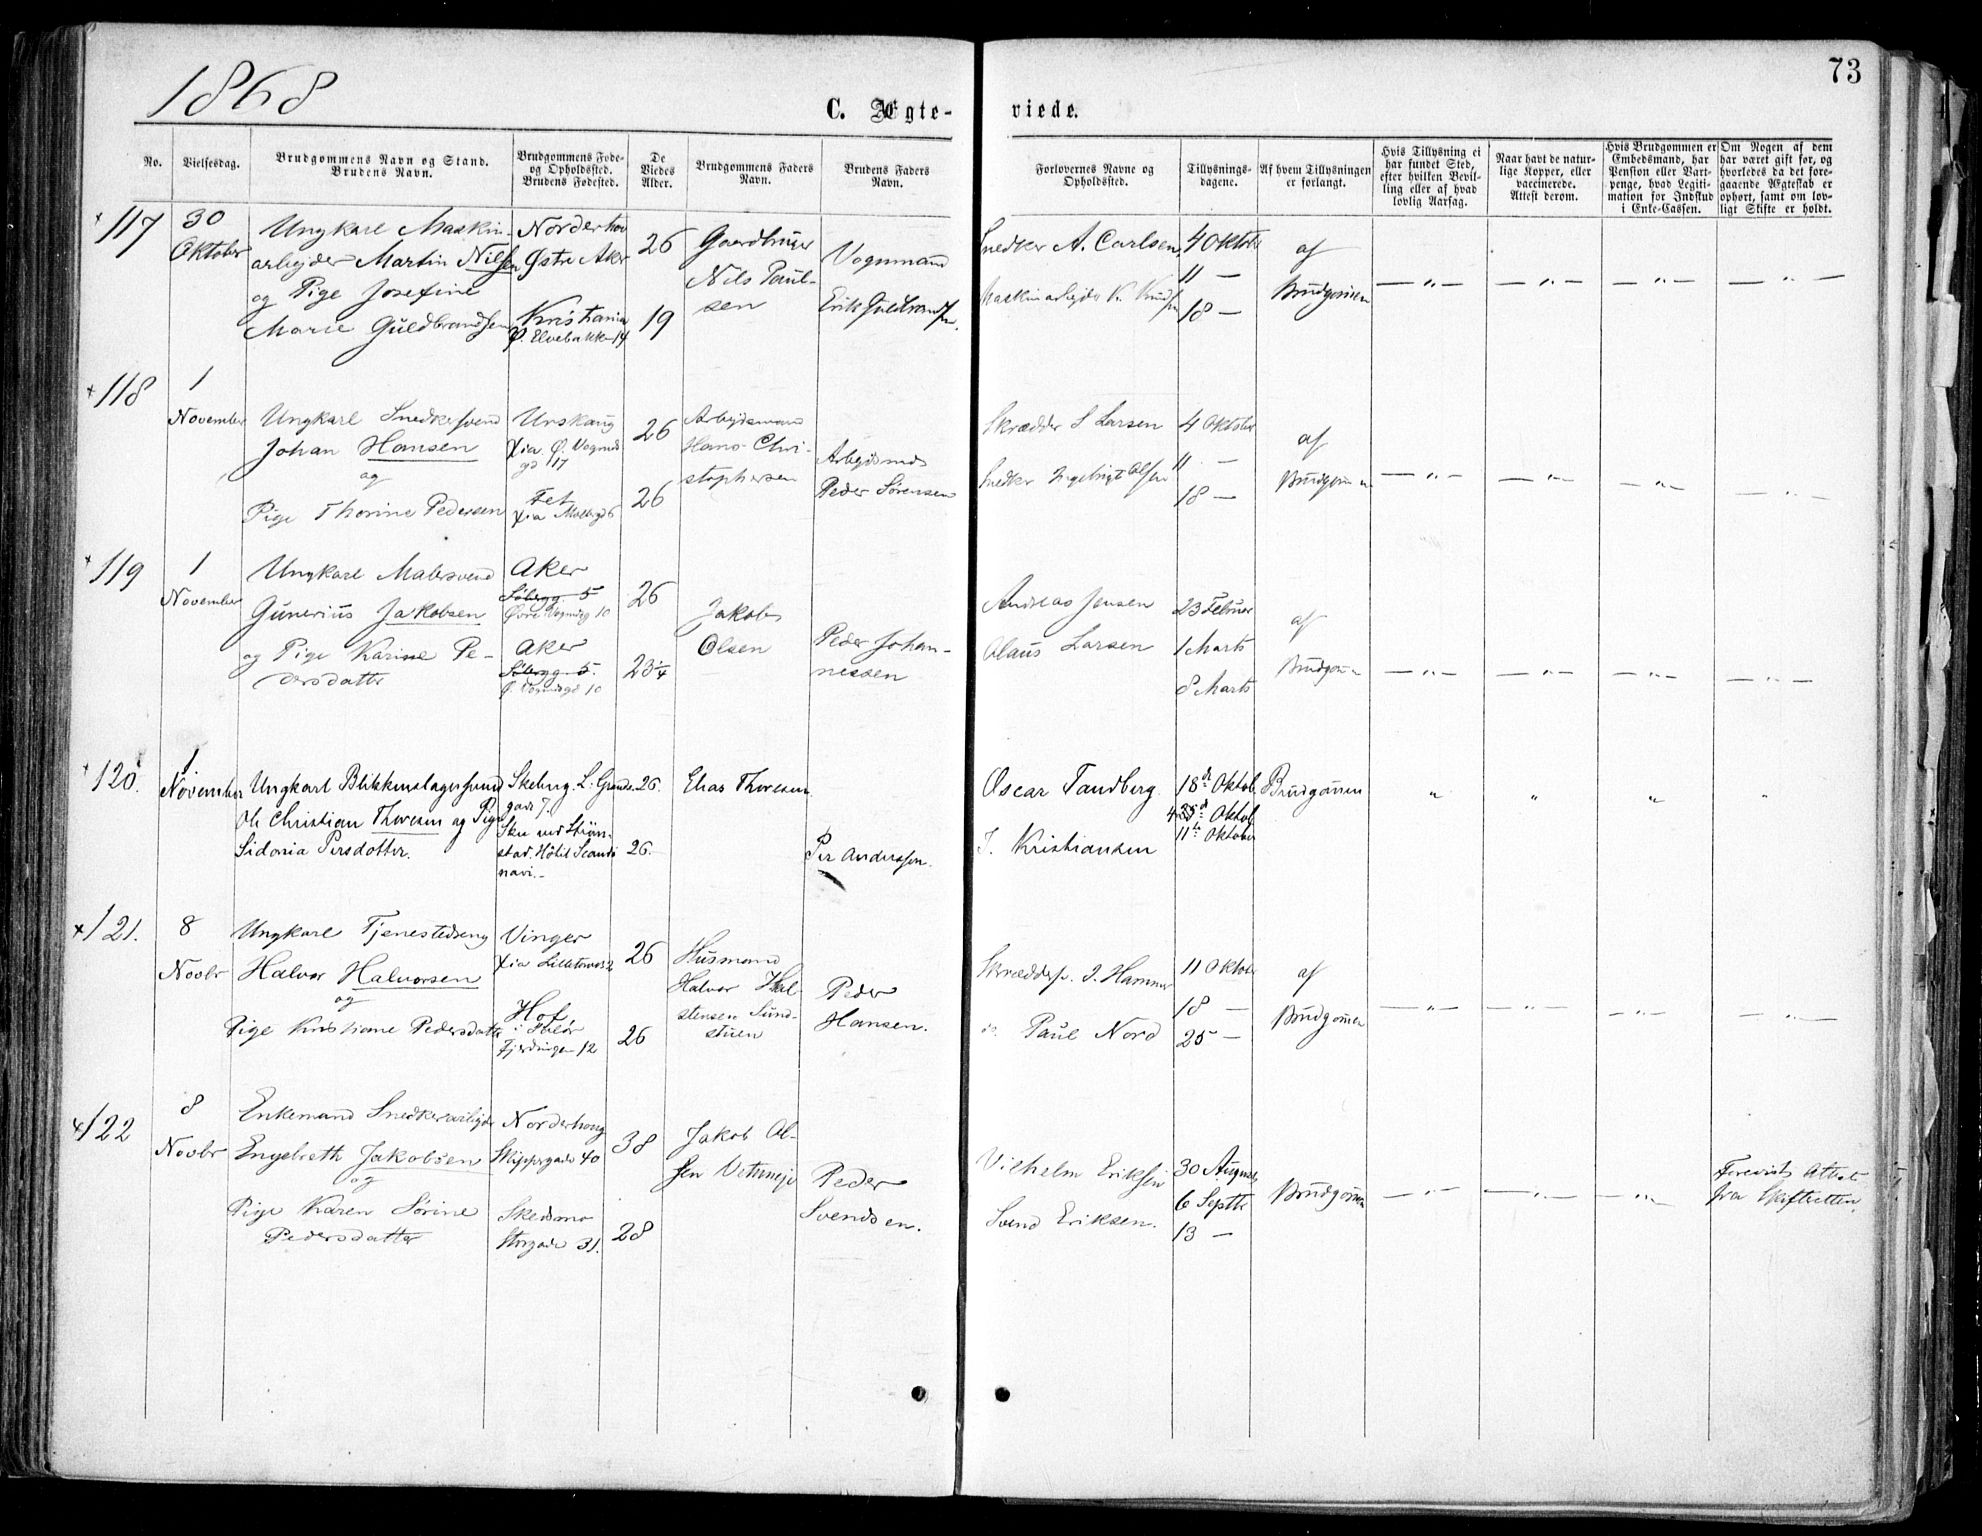 1868
73
C. Ægte-
viede.
No.
Vielsesdag.
Brudgommens Navn og Stand.
Brudens Navn.
Brudgommens Føde-
og Opholdssted.
Brudens Fødested.
De
Viedes
Alder.
Brudgommens Faders
Navn.
Brudens Faders
Navn.
Forlovernes Navne og
Opholdssted.
Tillysnings-
dagene.
Af hvem Tillysningen
er forlangt.
Hvis Tillysning ei
har fundet Sted,
efter hvilken Bevil-
ling eller af hvad
lovlig Aarsag.
Naar havt de natur-
lige Kopper, eller
vaccinerede.
Attest derom.
Hvis Brudgommen er
Embedsmand, har
Pension eller Vart-
penge, hvad Legiti-
mation for Indskud
i Enke-Cassen.
Om Nogen af dem
har været gift før, og
hvorledes da det fore-
gaaende Ægteskab er
ophørt, samt om lov-
ligt Skifte er holdt.
117
30
Oktober
Ungkarl Maskin-
arbejder Martin Nilsen
og Pige Josefine
Marie Guldbrandsen
Norderhov
Østre Aker
Kristiania
Ø. Elvebakke 14
26
19
Gaardbruger
Nils Paul-
sen
Vognmand
Erik Guldbrandsen.
Snedker A. Carlsen
Maskinarbejder K. Knudsen
4 Oktober
11 —
18 —
af
Brudgommen
— „ —
— „ —
— „ —
— „ —
118
1
November
Ungkarl Snedkersvend
Johan Hansen
og
Pige Thorine Pedersen
Urskaug
Xia Ø. Vognmds
gd 17
Fet
Xia Møllergd 6
26
26
Arbejdsmand
Hans Chri-
stophersen
Arbejdsmd
Peder Sørensen
Skrædder S Larsen
Snedker Ingebrigt Olsen
4 Oktober
11 —
18 —
af
Brudgommen
— „ —
— „ —
— „ —
— „ —
119
1
November
Ungkarl Malersvend
Gunerius Jakobsen
og Pige Karine Pe-
dersdatter
Aker
Øvre Vognmg 10
Aker
Ø. Vognmdgd 10
26
23 1/4
Jakob
Olsen
Peder Johan-
nessen
Andreas Jensen
Olaus Larsen
23 Februar
1 Marts
8 Marts
af
Brudgommen
— „ —
— „ —
— „ —
— „ —
120.
1
November
Ungkarl Blikkenslagersvend
Ole Christian Thoresen og Pige
Sidonia Persdotter.
L. Grænde-
gade 7.
Skee ved Strøm-
stad. Hôtel Scandi
navi.-
26.
26.
Elias Thoresen
Per Andersson.
Oscar Tandberg.
J. Kristiansen
18de Oktob.
Oktob
11te Oktober
Brudgommen
„
„
„
„
121.
8
Novbr
Ungkarl Tjenestedreng
Halvor Halvorsen
og
Pige Kristiane Pedersdatter
Vinger
Xia Lilletorvet 2
Hof
i Solør
Fjerdingen 12
26
26
Husmand
Halvor Hal-
stensen Sund-
stuen
Peder
Hansen.
Skræddersv. J. Hammer
do. Paul Nord
11 Oktober
18 —
25 —
af
Brudgommen
— „ —
— „ —
— „ —
— „ —
122
8
Novbr
Enkemand Snedkerarbejder
Engebreth Jakobsen
og
Pige Karen Sørine
Pedersdatter
Norderhoug
Skippergade 40
Skedsmo
Storgade 31.
38
28
Jakob Ol-
sen
Peder
Svendsen.
Vilhelm Eriksen
Svend Eriksen.
30 August
6 Septbr
13 —
Brudgommen
— „ —
— „ —
— „ —
Forevist Attest
fra Skifteretten.